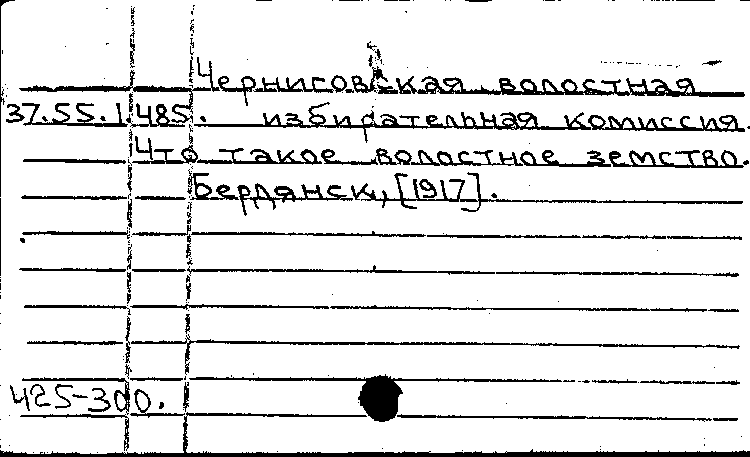 Черниговская волостная
37.55.1.485. избирательная комиссия.
Что такое волостное земство.
Бердянск, [1917].
425-300.